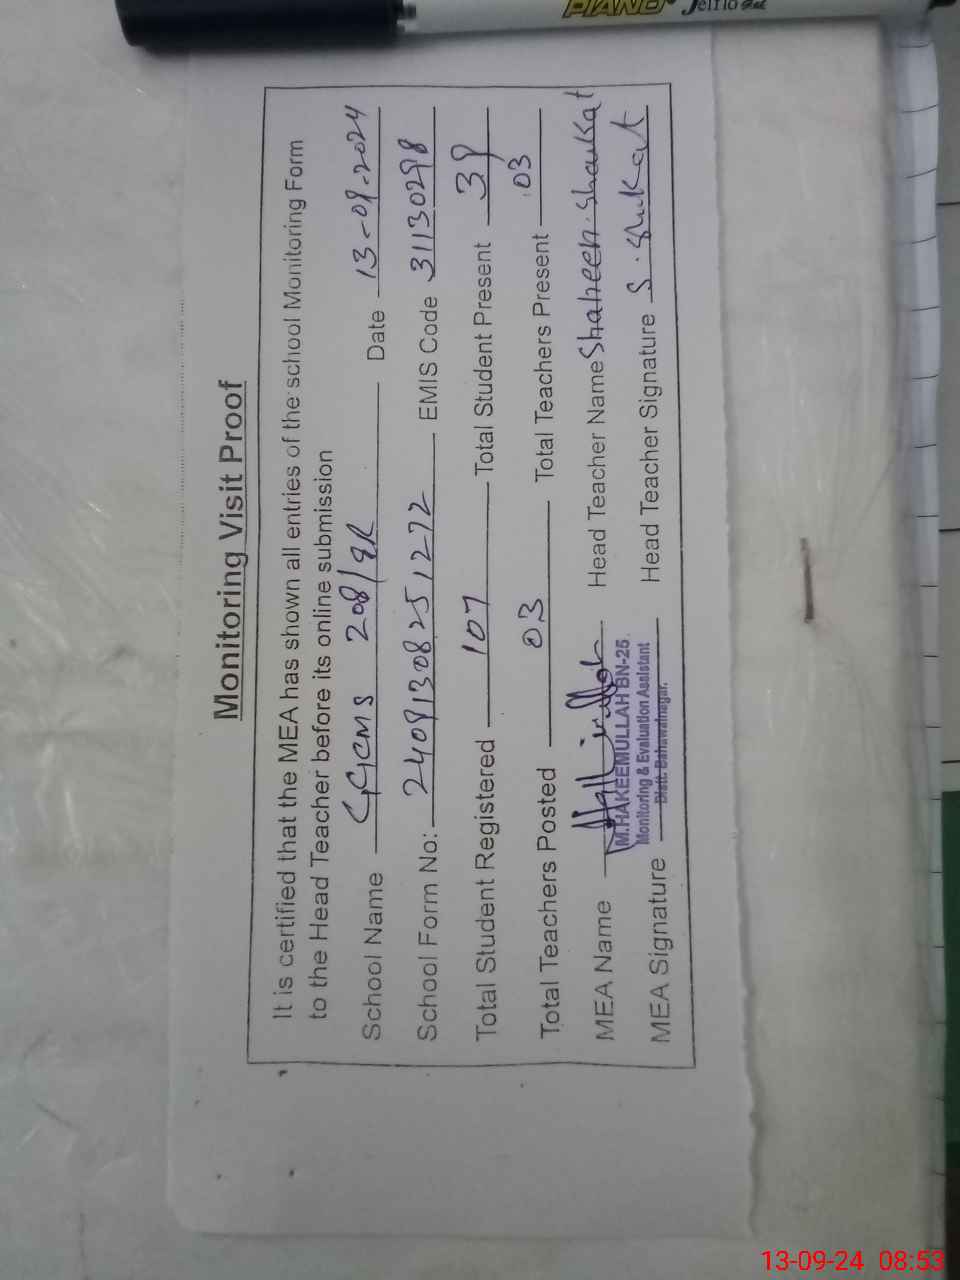 PIANO Jello Gel
Monitoring Visit Proof
It is certified that the MEA has shown all entries of the school Monitoring Form
to the Head Teacher before its online submission
School Name GGCMS 208/9R Date 13-09-2024
School Form No: 24091308251272 EMIS Code 31130298
Total Student Registered 107 Total Student Present 39
Total Teachers Posted 03 Total Teachers Present 03
MEA Name Head Teacher Name Shaheen Shaukat
M.HAKEEMULLAH BN-25
Monitoring & Evaluation Assistant
Distt. Bahawalnagar.
MEA Signature Head Teacher Signature S. Shukat
13-09-24 08:53